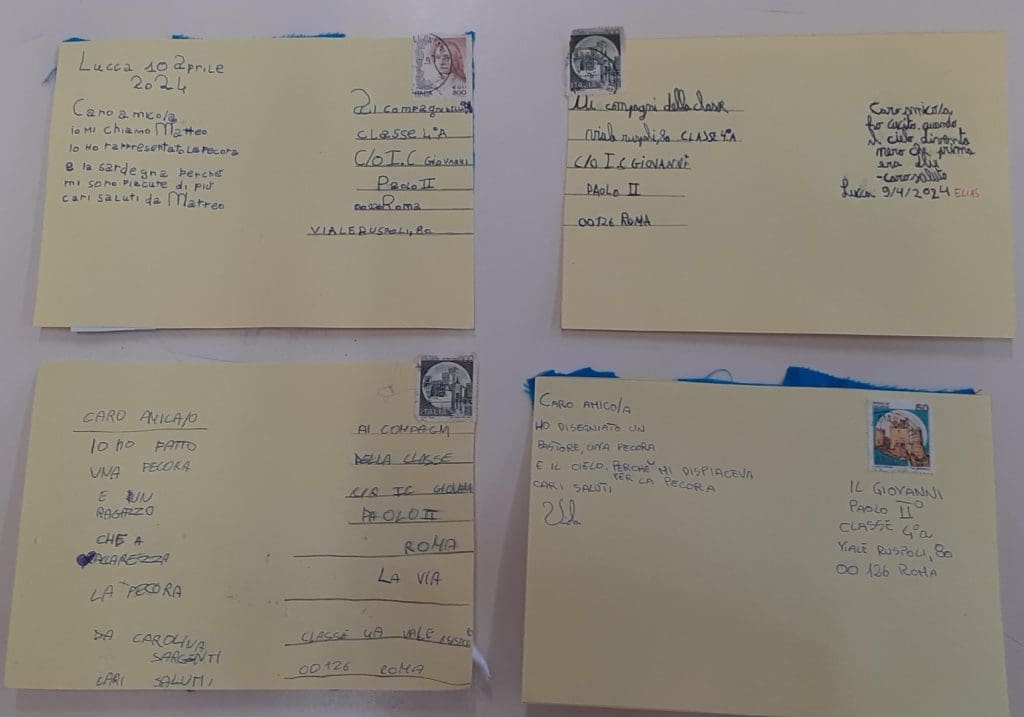 Lucca 10 Aprile
2024
Caro amico/a
io Mi chiamo Matteo
io Ho rappresentato la pecora
e la Sardegna perché
mi sono piaciute di più
cari saluti da Matteo
Ai compagni
classe 4ªA
C/O I.C GIOVANNI
Paolo II
00126 Roma
VIALE RUSPOLI, 80
ITALIA
Ai compagni della classe
viale ruspoli, 80 CLASSE 4ªA
C/O I.C GIOVANNI
PAOLO II
00126 ROMA
Caro amico/a
ho cucito quando
il cielo diventa
nero che prima
era blu
-caro saluto
Lucca 9/4/2024 ELIAS
CARO AMICA/O
IO HO FATTO
UNA PECORA
E UN
RAGAZZO
CHE A
ACCAREZZA
LA PECORA
DA CAROLINA
SARGENTI
CARI SALUTI
ITALIA
AI COMPAGNI
DELLA CLASSE
C/O IC GIOVANNI
PAOLO II
ROMA
LA VIA
CLASSE 4A VALE RUSPOLI
00126 ROMA
CARO AMICO/A
HO DISEGNATO UN
PASTORE, UNA PECORA
E IL CIELO. PERCHÈ MI DISPIACEVA
PER LA PECORA
CARI SALUTI
50
IL GIOVANNI
PAOLO II°
CLASSE 4°a
VIALE RUSPOLI, 80
00126 ROMA